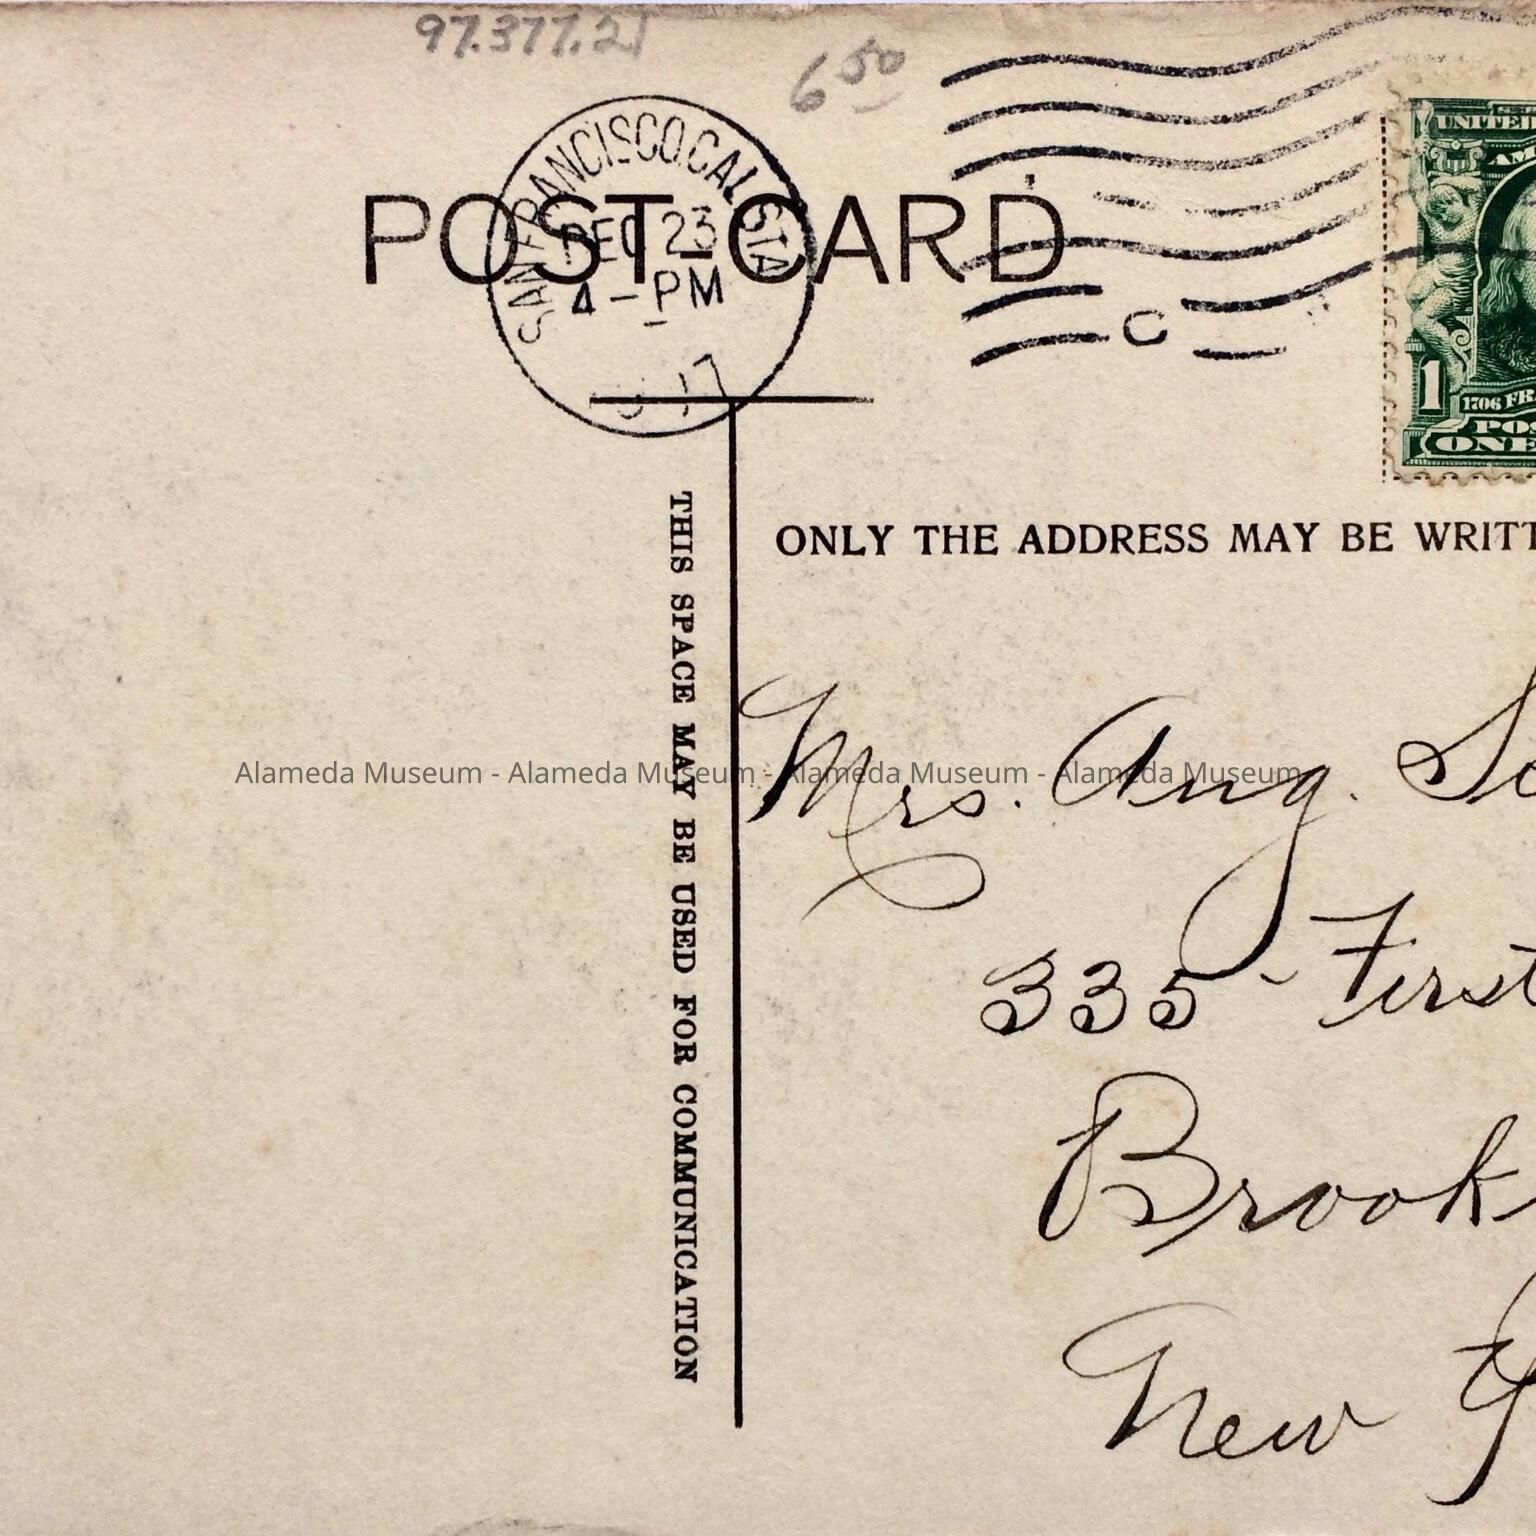 97.377.21
6 50
SAN FRANCISCO, CAL. STA.
DEC 23
4 - PM
POST-CARD
C
UNITED
1
1706 FRA
ONE
THIS SPACE MAY BE USED FOR COMMUNICATION
ONLY THE ADDRESS MAY BE WRITT
Mrs. Aug.
335 - First
Brook
New Y
Alameda Museum - Alameda Museum - Alameda Museum - Alameda Museum